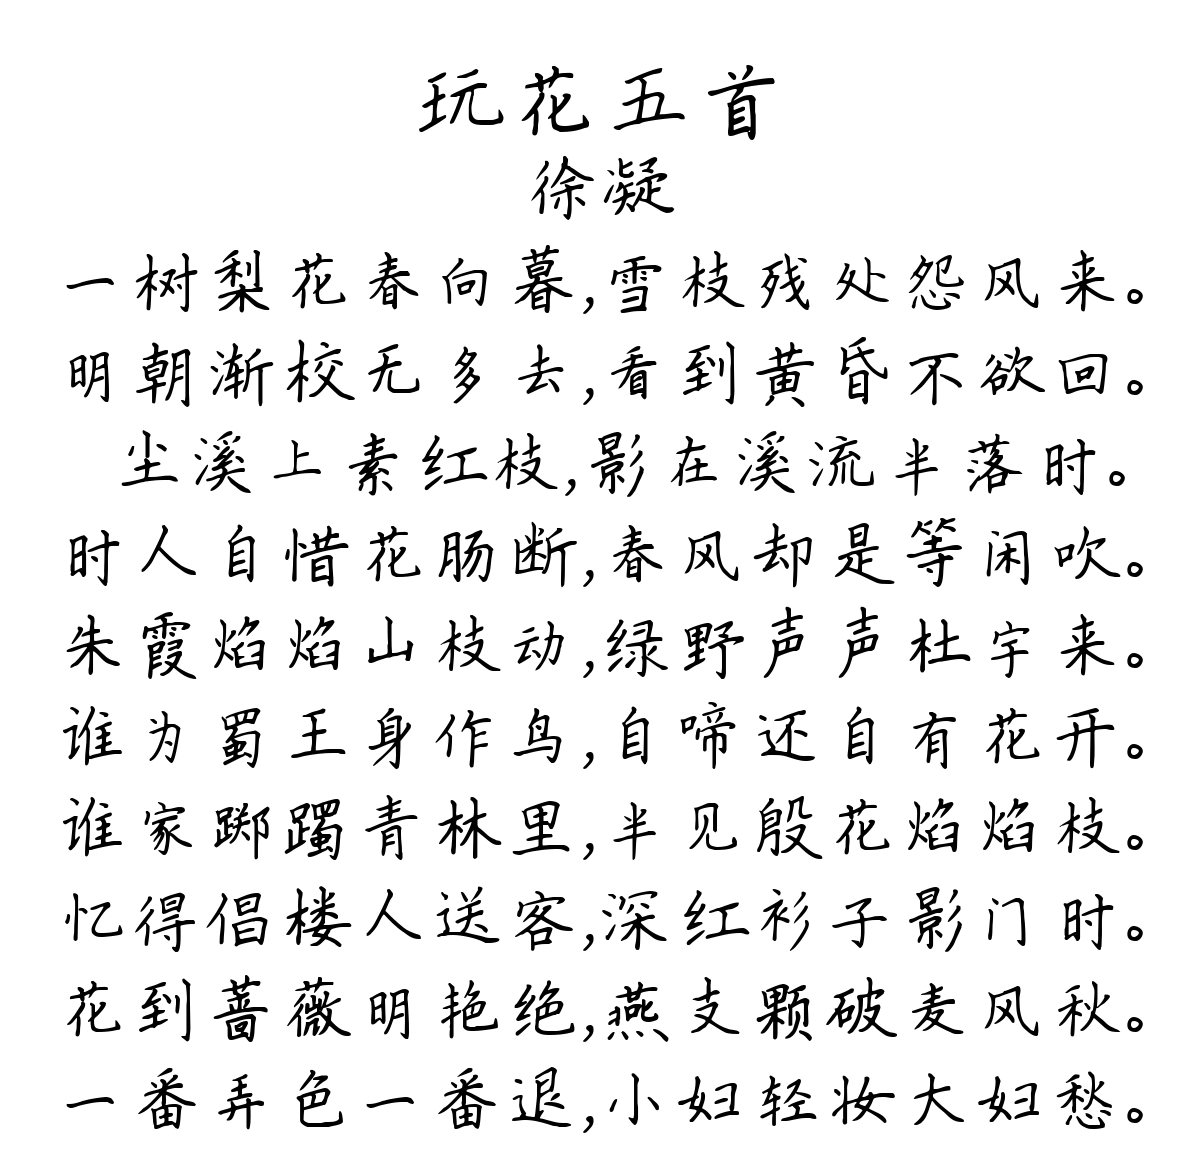 玩花五首
徐凝
一树梨花春向暮,雪枝残处怨风来。
明朝渐校无多去,看到黄昏不欲回。
尘溪上素红枝,影在溪流半落时。
时人自惜花肠断,春风却是等闲吹。
朱霞焰焰山枝动,绿野声声杜宇来。
谁为蜀王身作鸟,自啼还自有花开。
谁家踯躅青林里,半见殷花焰焰枝。
忆得倡楼人送客,深红衫子影门时。
花到蔷薇明艳绝,燕支颗破麦风秋。
一番弄色一番退,小妇轻妆大妇愁。